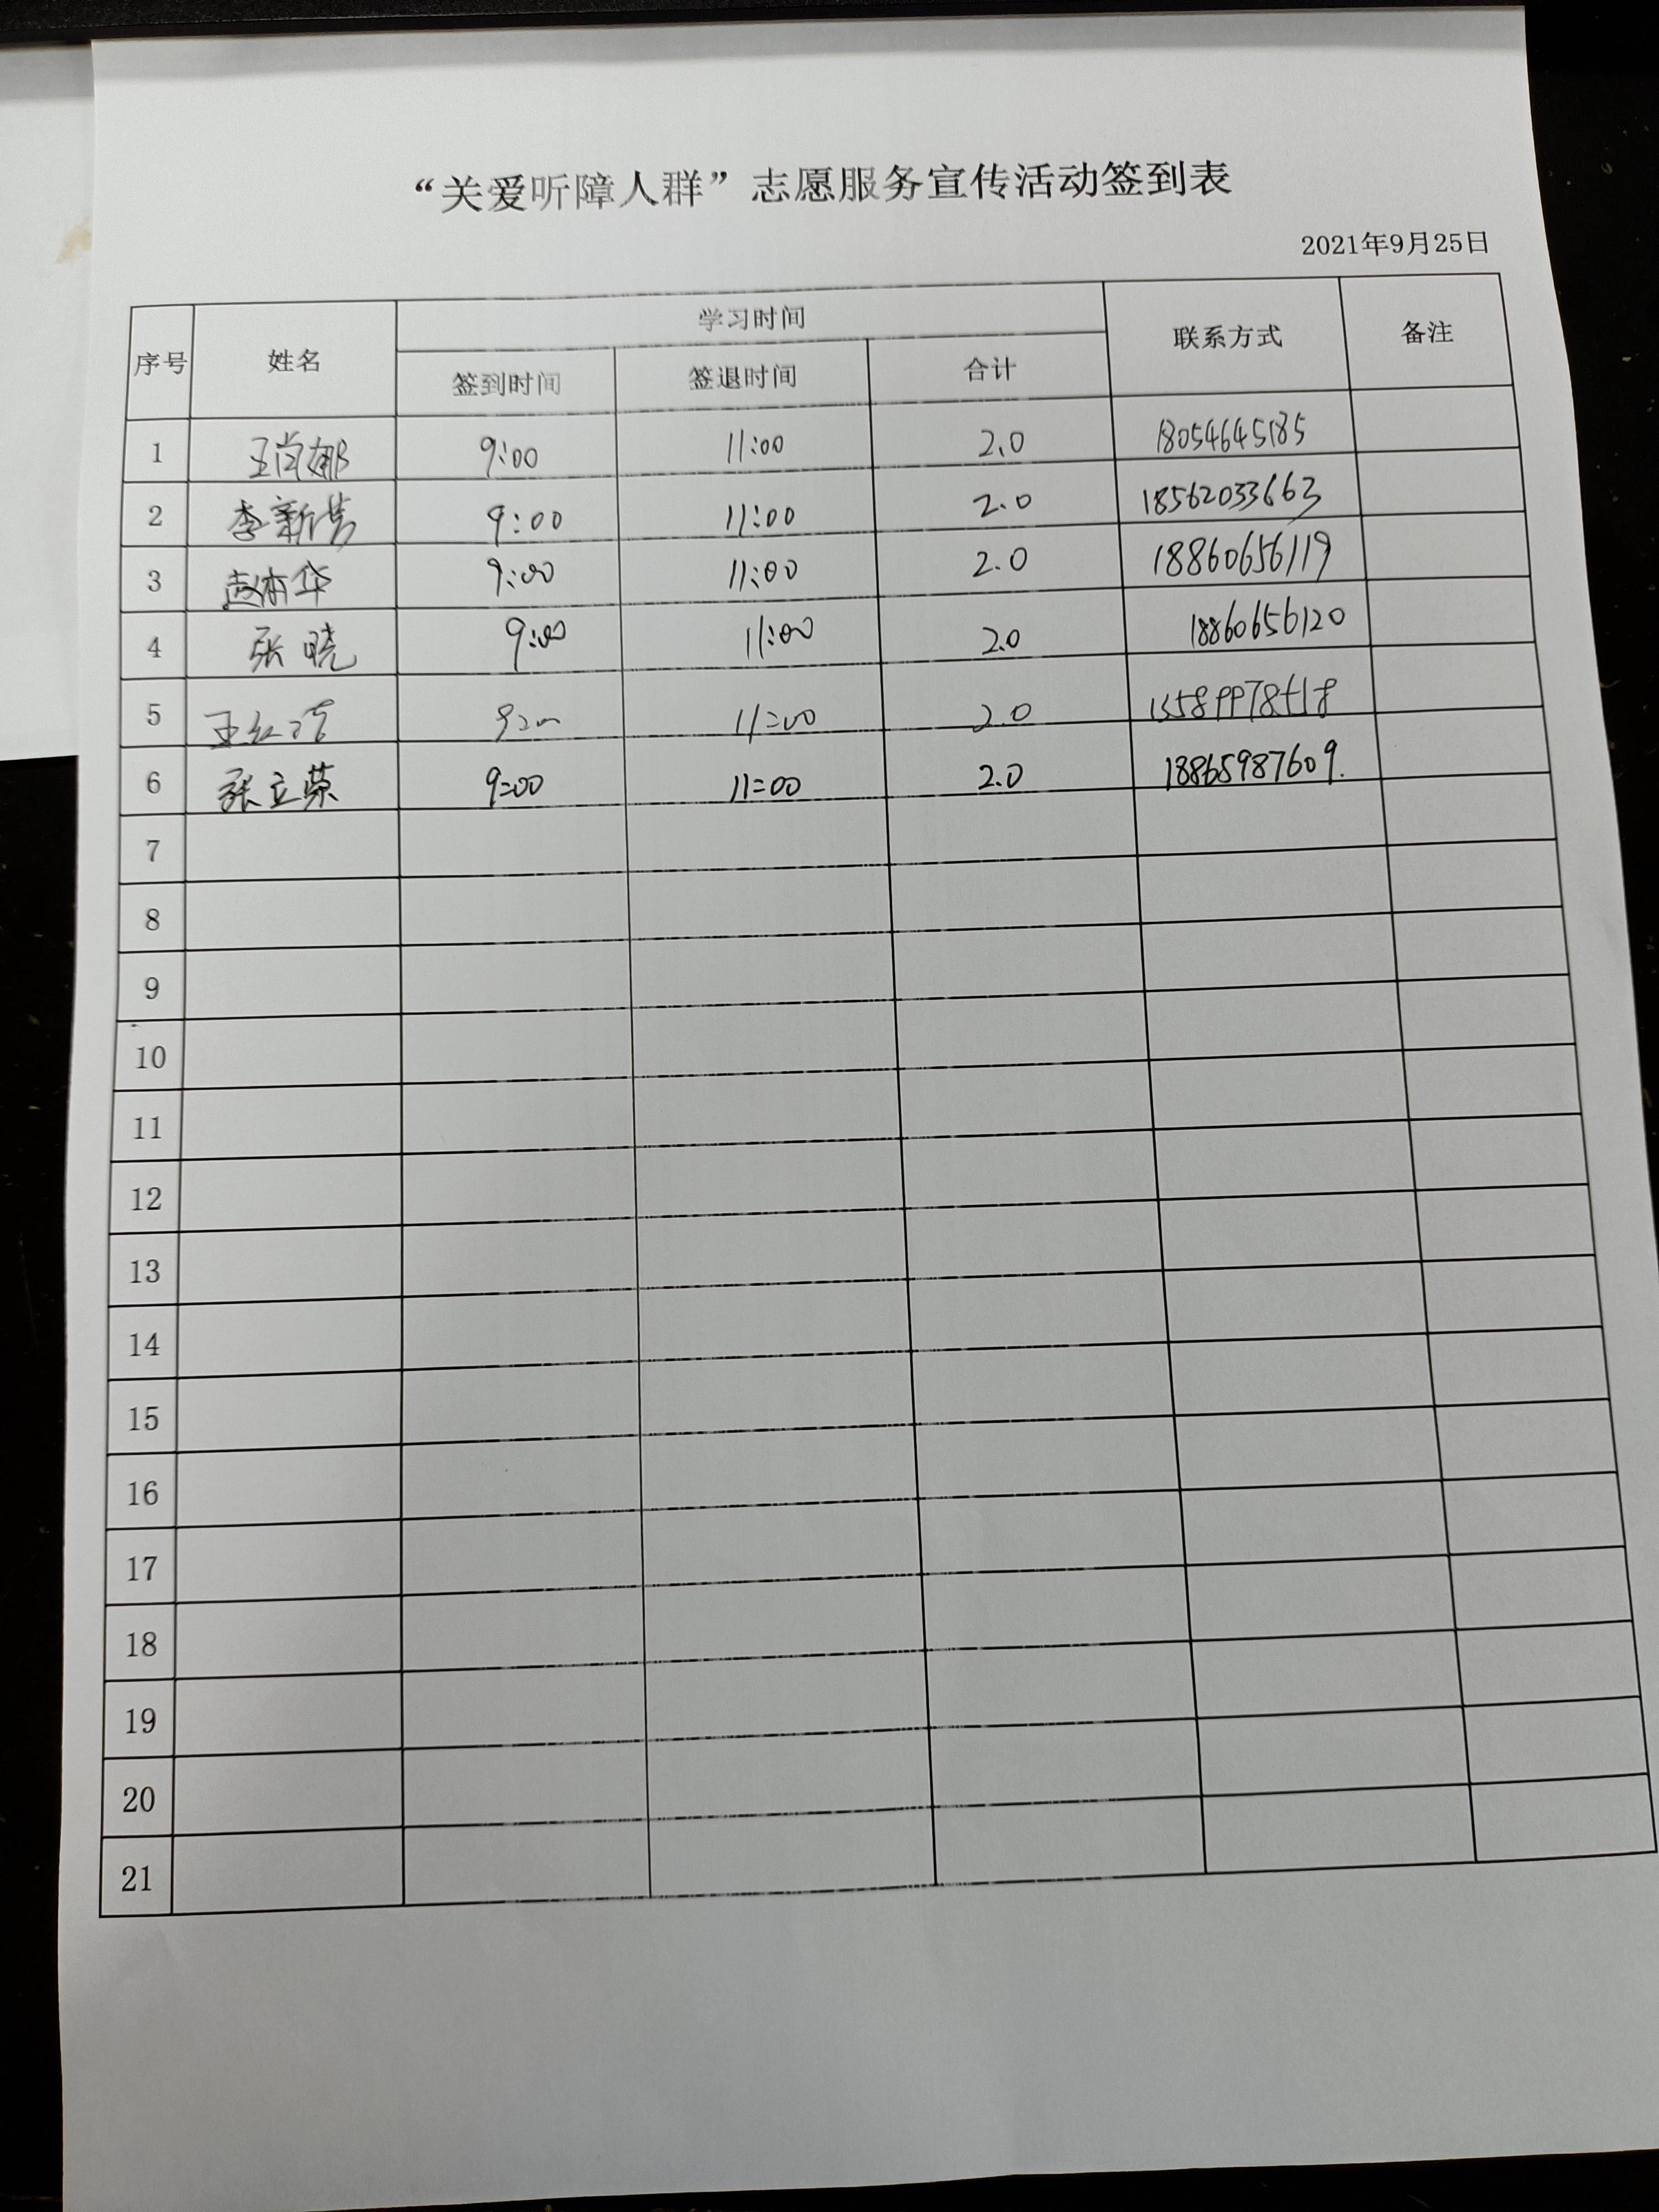 “关爱听障人群”志愿服务宣传活动签到表
2021年9月25日
序号 姓名 学习时间 联系方式 备注
签到时间 签退时间 合计
1 王尚娜 9:00 11:00 2.0 18054645185
2 李新芳 9:00 11:00 2.0 18562033663
3 赵 华 9:00 11:00 2.0 18860656119
4 张晓 9:00 11:00 2.0 18860656120
5 王红 11:00 2.0
6 张立荣 9:00 11:00 2.0 18865987609.
7
8
9
10
11
12
13
14
15
16
17
18
19
20
21